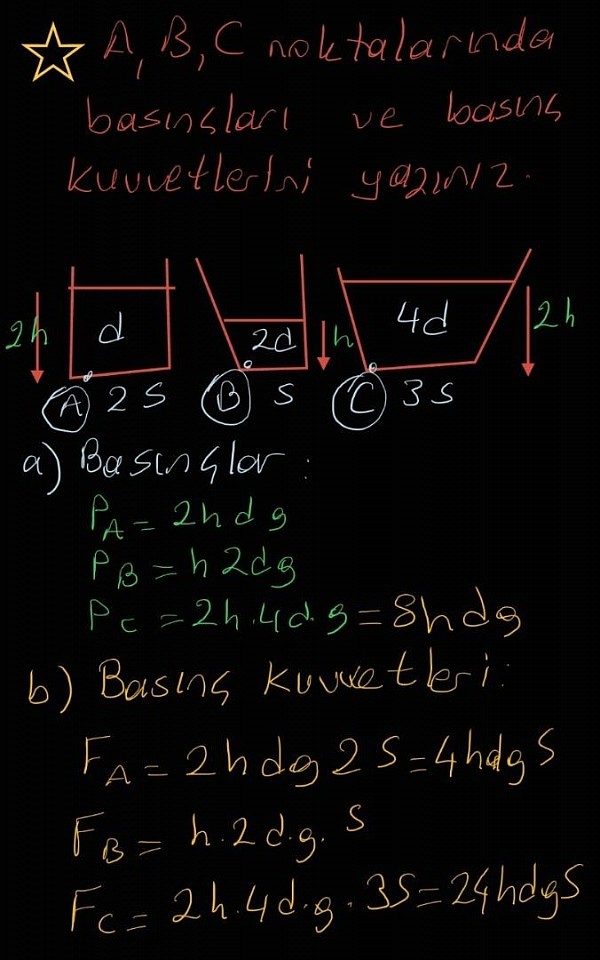 A, B, C noktalarında
basınçları ve basınç
kuvvetlerini yazınız.
2h d 2d h 4d 2h
A 2S B S C 3S
a) Basınçlar:
P_A = 2hdg
P_B = h2dg
P_C = 2h.4d.g = 8hdg
b) Basınç kuvvetleri:
F_A = 2hdg2S = 4hdgS
F_B = h.2d.g.S
F_C = 2h.4d.g.3S = 24hdgS